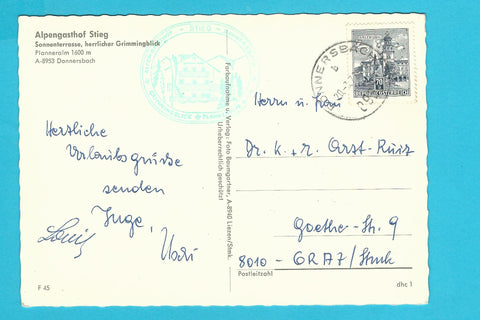 Alpengasthof Stieg
Sonnenterrasse, herrlicher Grimmingblick
Planneralm 1600 m
A-8953 Donnersbach
STIEG
DONNERSBACH
REPUBLIK ÖSTERREICH
Herrn u. Frau
Dr. K. + r. Arzt-Ruiz
Goethe-Str. 9
8010 - GRAZ / Stmk
Postleitzahl
Herzliche
Urlaubsgrüße
senden
Inge,
Uschi
Farbaufnahme u. Verlag: Foto Baumgartner, A-8940 Liezen/Stmk.
Urheberrechtlich geschützt
F 45
dhc 1